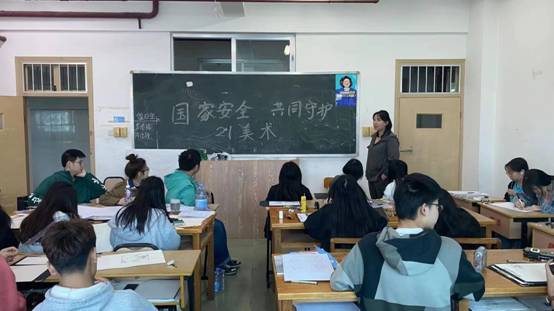 国家安全 共同守护
21美术